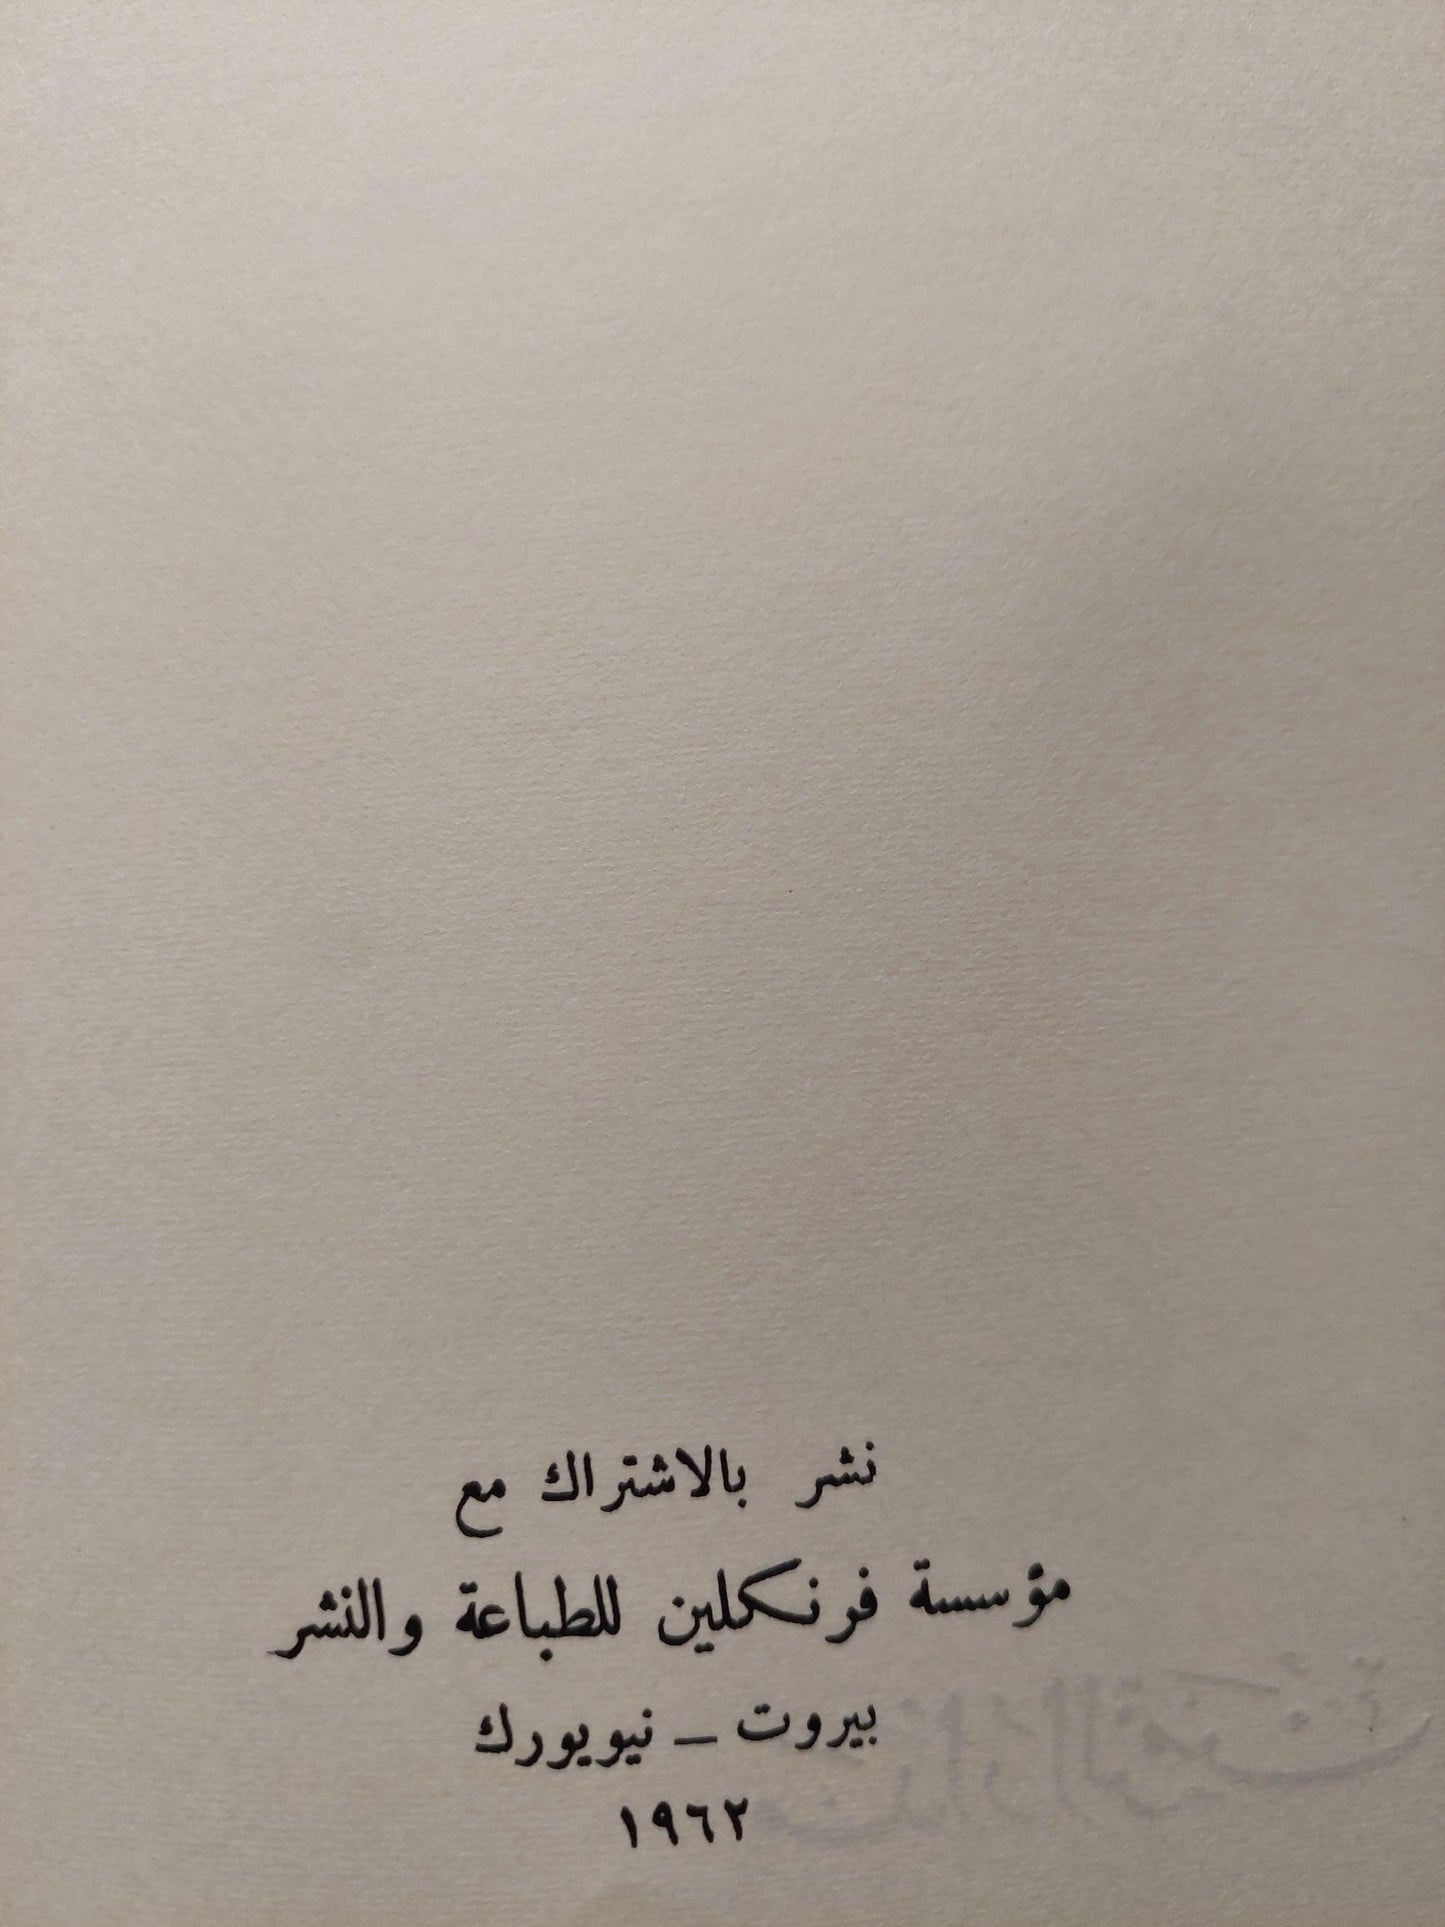 نشر بالاشتراك مع
مؤسسة فرنكلين للطباعة والنشر
بيروت – نيويورك
١٩٦٢